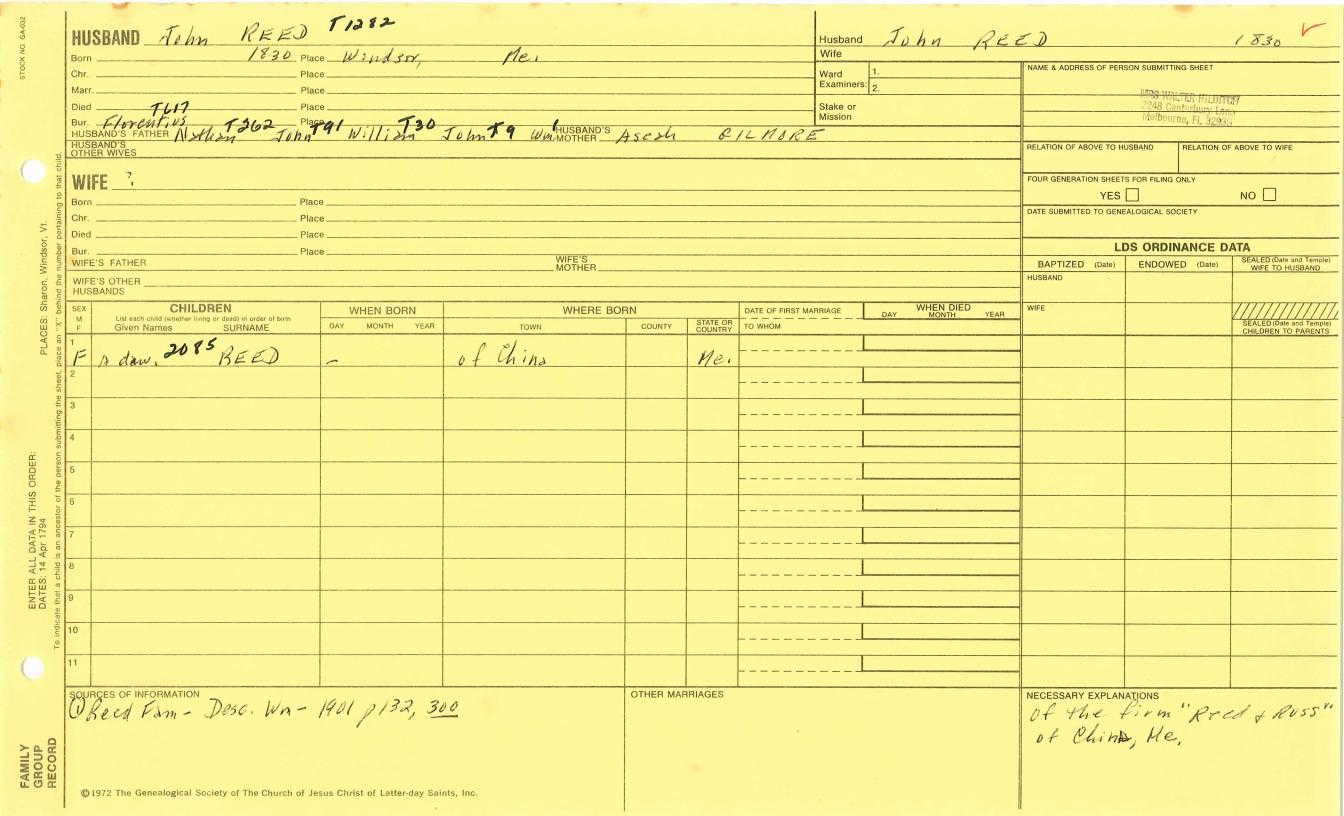 STOCK NO. GA-032
HUSBAND John REED T1282
Born 1830 Place Windsor, Me.
Chr. Place
Marr. Place
Died Place
T617
Bur. Florentius Place
HUSBAND'S FATHER Nathan T262 John T91 William T30 John T9 Wm' HUSBAND'S MOTHER Aseah GILMORE
HUSBAND'S OTHER WIVES
Husband John REED 1830
Wife
Ward Examiners: 1.
2.
Stake or Mission
NAME & ADDRESS OF PERSON SUBMITTING SHEET
MRS WALTER HILDITCH
2248 Canterbury Lane
Melbourne, FL 32935
RELATION OF ABOVE TO HUSBAND RELATION OF ABOVE TO WIFE
FOUR GENERATION SHEETS FOR FILING ONLY
YES NO
DATE SUBMITTED TO GENEALOGICAL SOCIETY
WIFE ?
Born Place
Chr. Place
Died Place
Bur. Place
WIFE'S FATHER WIFE'S MOTHER
WIFE'S OTHER HUSBANDS
LDS ORDINANCE DATA
BAPTIZED (Date) ENDOWED (Date) SEALED (Date and Temple) WIFE TO HUSBAND
HUSBAND
WIFE
SEALED (Date and Temple) CHILDREN TO PARENTS
SEX M F
CHILDREN
List each child (whether living or dead) in order of birth
Given Names SURNAME
WHEN BORN
DAY MONTH YEAR
WHERE BORN
TOWN COUNTY STATE OR COUNTRY
DATE OF FIRST MARRIAGE
TO WHOM
WHEN DIED
DAY MONTH YEAR
1
F a daw. 2085 REED – of China Me.
2
3
4
5
6
7
8
9
10
11
SOURCES OF INFORMATION
① Reed Fam - Desc. Wm - 1901 p132, 300
OTHER MARRIAGES
NECESSARY EXPLANATIONS
of the firm "Reed & Russ"
of China, Me.
©1972 The Genealogical Society of The Church of Jesus Christ of Latter-day Saints, Inc.
PLACES: Sharon, Windsor, Vt.
To indicate that a child is an ancestor of the person submitting the sheet, place an "X" behind the number pertaining to that child.
ENTER ALL DATA IN THIS ORDER:
DATES: 14 Apr 1794
FAMILY
GROUP
RECORD